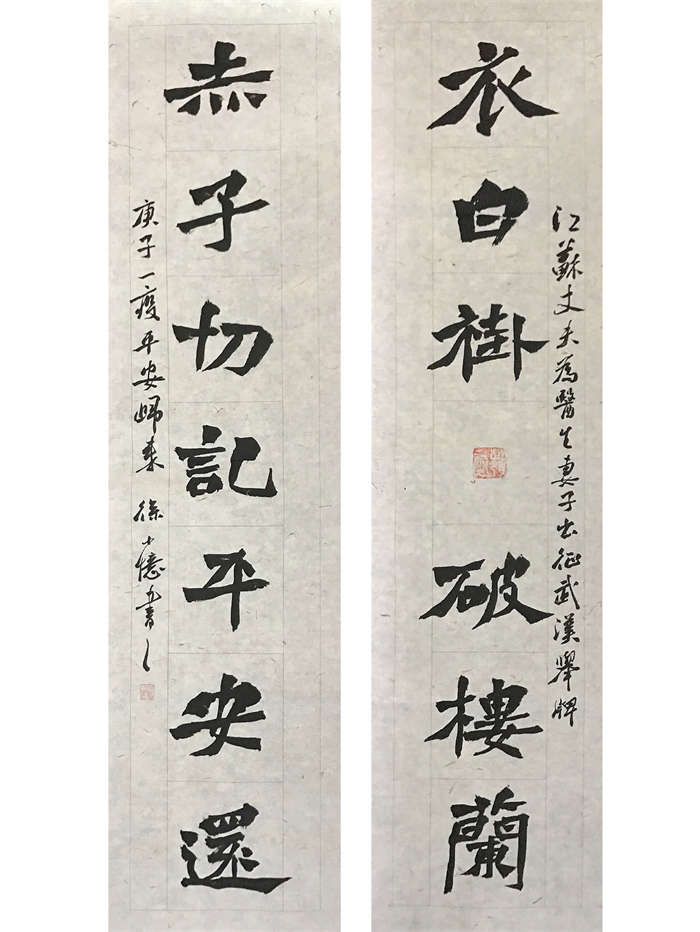 衣白褂破樓蘭
江蘇丈夫為醫生妻子出征武漢舉牌
赤子切記平安還
庚子一疫平安歸來 徐小憶書